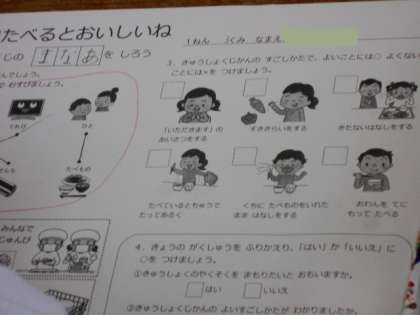 たべるとおいしいね
1ねん ふくみ なまえ
じの まなあを しろう
でしょう。
むすびましょう。
てれび
ひと
たべもの
みんなで
じゅんび
3. きゅうしょくじかんの すごしかたで、よいことには○ よくない
ことには×を つけましょう。
「いただきます」の
あいさつをする
すききらいをする
きたないはなしをする
たべているとちゅうで
たってあるく
くちに たべものをいれた
まま はなしをする
おわんを てに
もって たべる
4. きょうの がくしゅうを ふりかえり、「はい」か「いいえ」に
○を つけましょう。
①きゅうしょくのやくそくを まもりたいと おもいますか。
はい いいえ
②きゅうしょくじかんのよいすごしかたが わかりましたか。